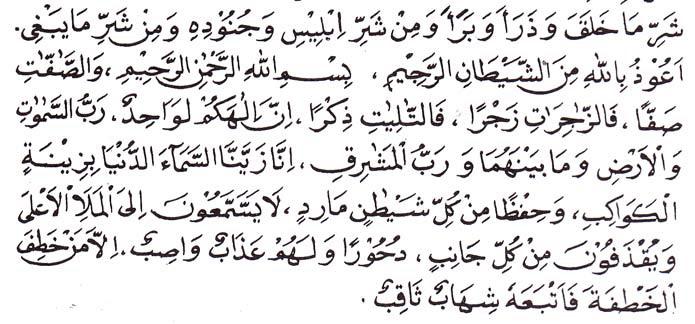 شَرِّ مَا خَلَقَ وَذَرَأَ وَبَرَأَ وَمِنْ شَرِّ اِبْلِيْسَ وَجُنُوْدِهِ وَمِنْ شَرِّ مَايَبْغِى.
اَعُوْذُ بِاللهِ مِنَ الشَّيْطَانِ الرَّجِيْمِ، بِسْمِ اللهِ الرَّحْمٰنِ الرَّحِيْمِ، وَالصّٰفّٰتِ
صَفًّا، فَالزَّاجِرَاتِ زَجْرًا، فَالتّٰلِيٰتِ ذِكْرًا، اِنَّ اِلٰهَكُمْ لَوَاحِدٌ، رَبُّ السَّمٰوٰتِ
وَالْاَرْضِ وَمَا بَيْنَهُمَا وَرَبُّ الْمَشٰرِقِ، اِنَّا زَيَّنَّا السَّمَآءَ الدُّنْيَا بِزِيْنَةٍ
الْكَوَاكِبِ، وَحِفْظًا مِنْ كُلِّ شَيْطٰنٍ مَارِدٍ، لَايَسَّمَّعُوْنَ اِلَى الْمَلَاِ الْاَعْلٰى
وَيُقْذَفُوْنَ مِنْ كُلِّ جَانِبٍ، دُحُوْرًا وَلَهُمْ عَذَابٌ وَاصِبٌ. اِلَّا مَنْ خَطِفَ
الْخَطْفَةَ فَاَتْبَعَهُ شِهَابٌ ثَاقِبٌ.